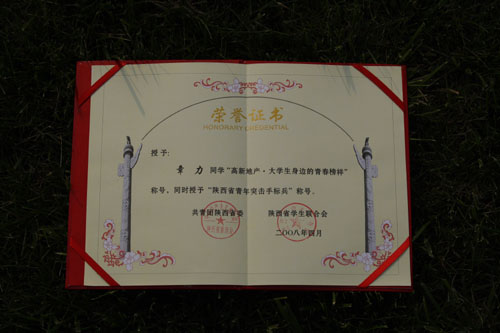 荣誉证书
HONORARY CREDENTIAL
授予：
章力 同学“高新地产·大学生身边的青春榜样”
称号，同时授予“陕西省青年突击手标兵”称号。
共青团陕西省委 陕西省学生联合会
二OO八年四月